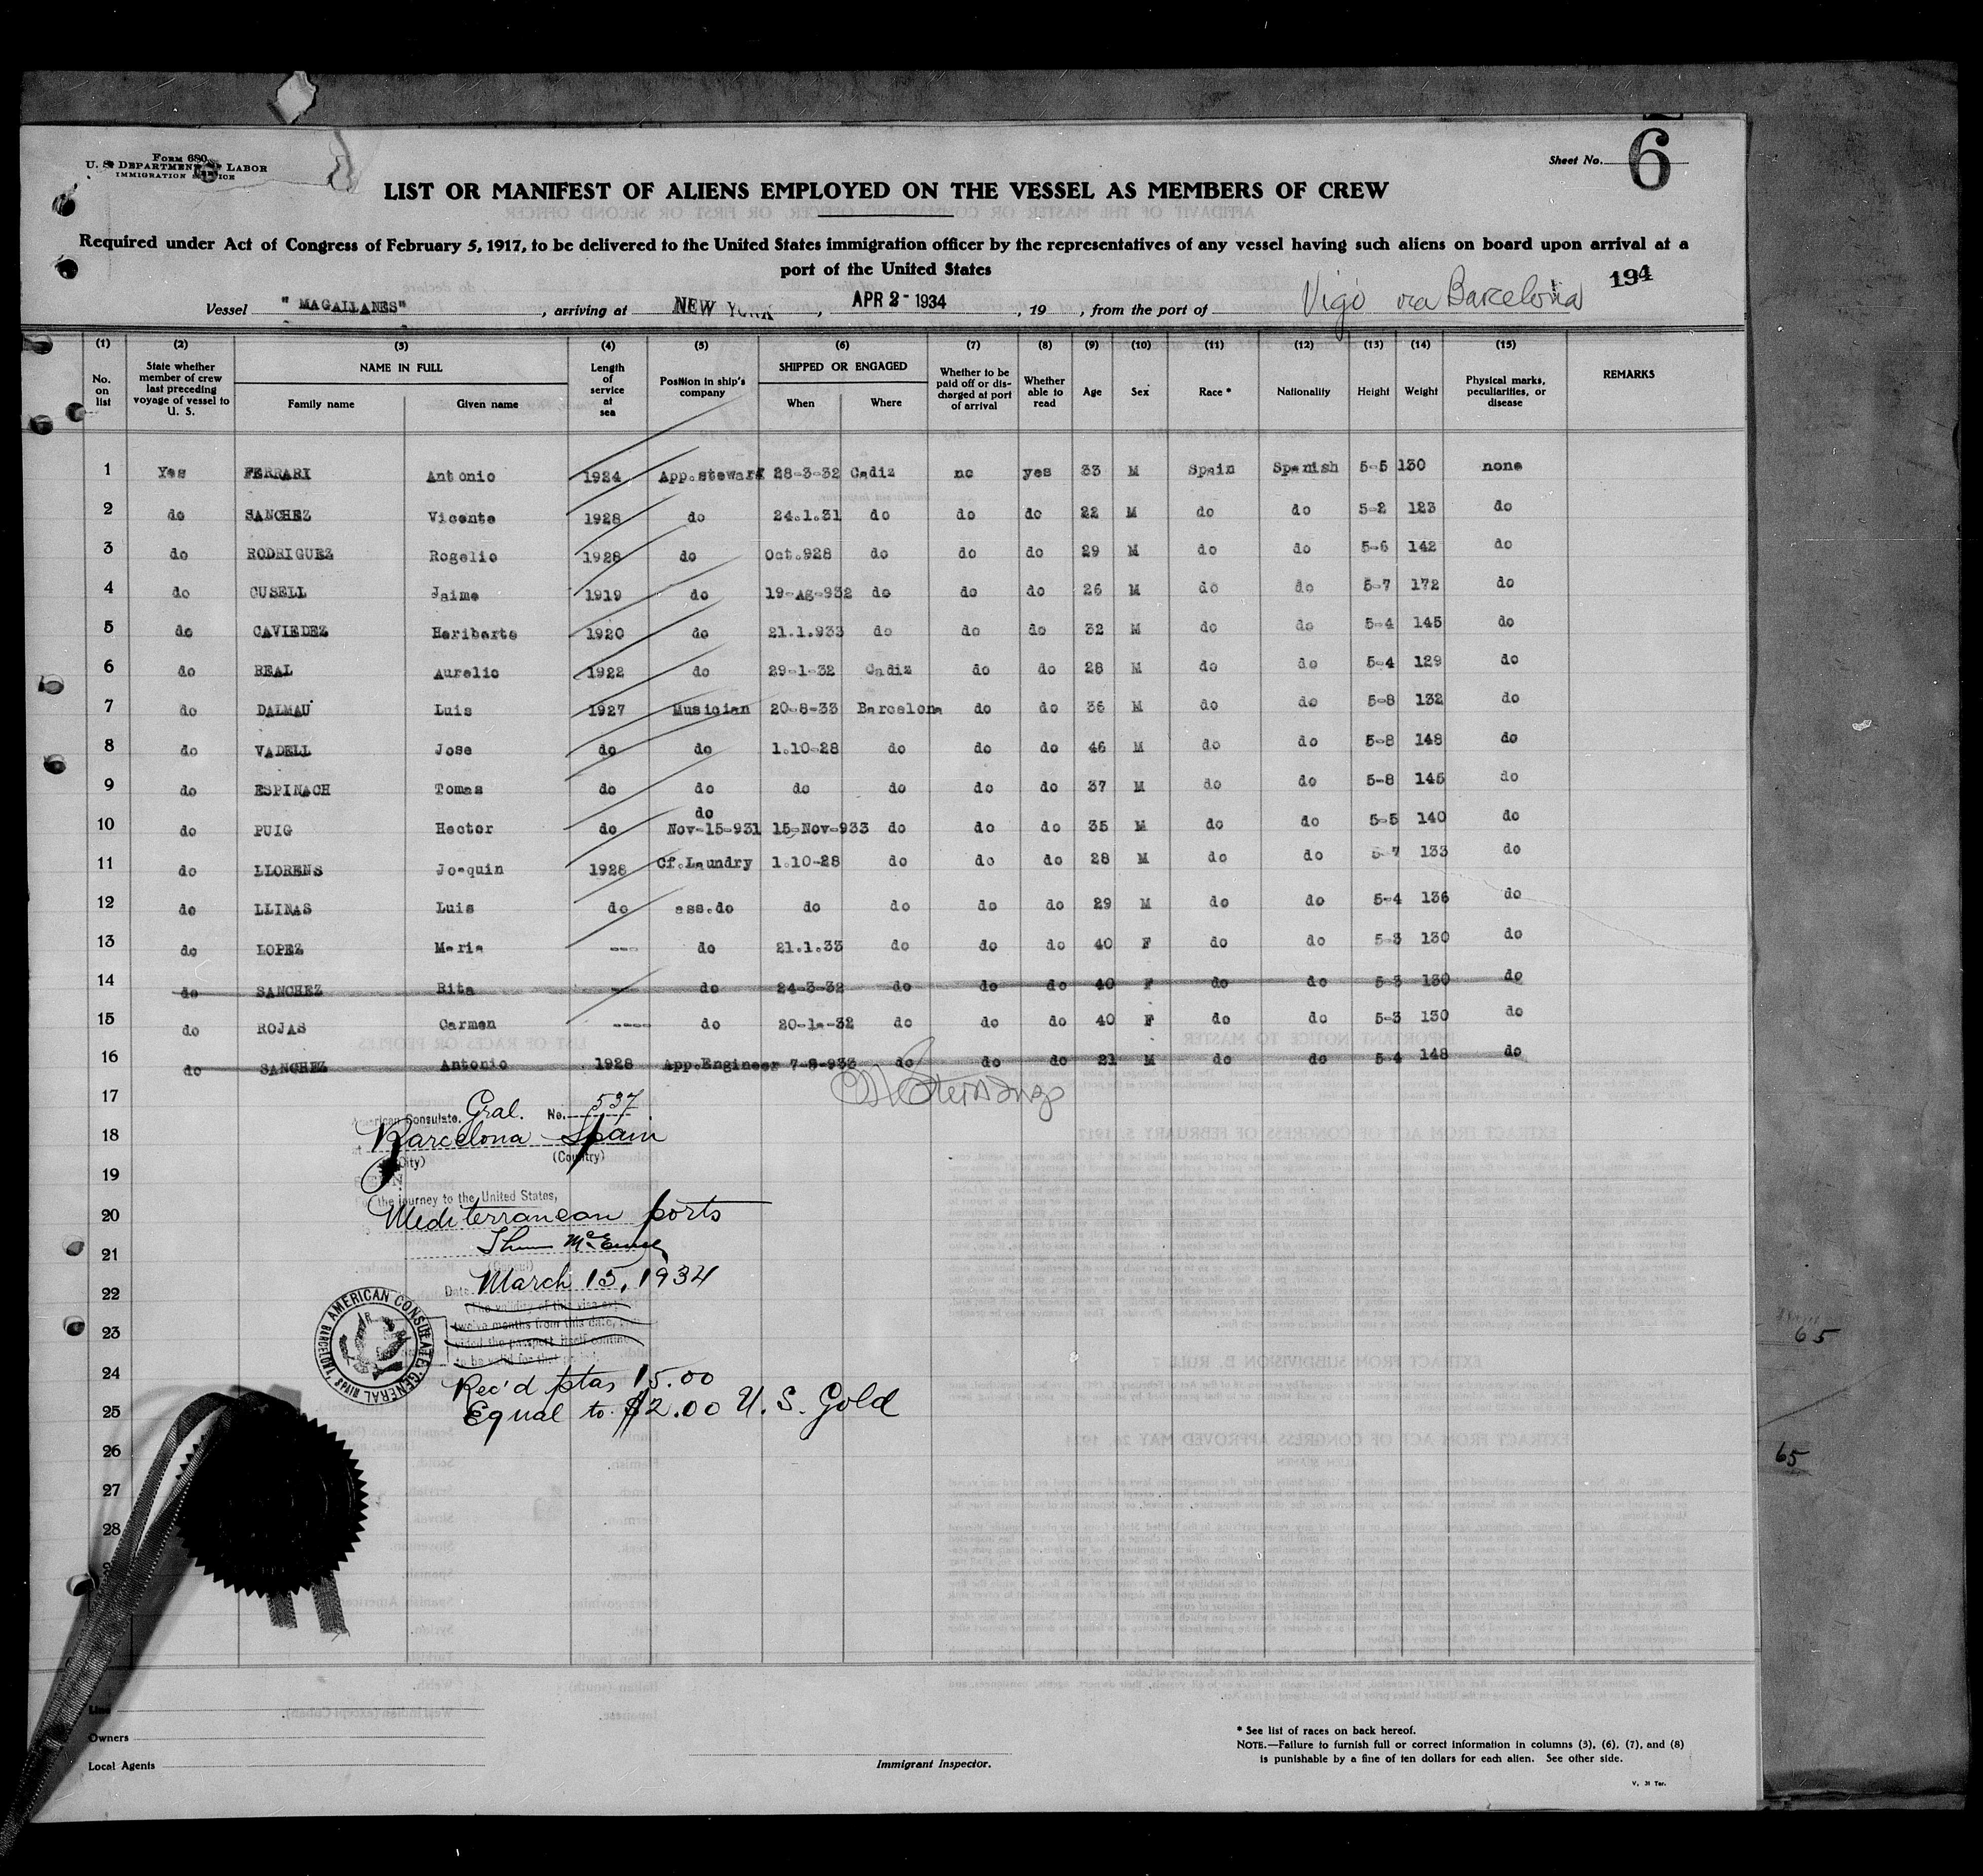 Form 680
U. S. DEPARTMENT OF LABOR
IMMIGRATION SERVICE
Sheet No. 6
LIST OR MANIFEST OF ALIENS EMPLOYED ON THE VESSEL AS MEMBERS OF CREW
Required under Act of Congress of February 5, 1917, to be delivered to the United States immigration officer by the representatives of any vessel having such aliens on board upon arrival at a
port of the United States
194
Vessel "MAGALLANES", arriving at NEW YORK, APR 2- 1934, 19 , from the port of Vigo via Barcelona
(1) (2) (3) (4) (5) (6) (7) (8) (9) (10) (11) (12) (13) (14) (15)
No. on list State whether member of crew last preceding voyage of vessel to U. S. NAME IN FULL Family name Given name Length of service at sea Position in ship's company SHIPPED OR ENGAGED When Where Whether to be paid off or discharged at port of arrival Whether able to read Age Sex Race * Nationality Height Weight Physical marks, peculiarities, or disease REMARKS
1 Yes FERRARI Antonio 1924 App.steward 28-3-32 Cadiz no yes 33 M Spain Spanish 5-5 130 none
2 do SANCHEZ Vicente 1928 do 24.1.31 do do do 22 M do do 5-2 123 do
3 do RODRIGUEZ Rogelio 1928 do Oct.928 do do do 29 M do do 5-6 142 do
4 do CUSELL Jaime 1919 do 19-Ag-932 do do do 26 M do do 5-7 172 do
5 do CAVIEDEZ Heriberto 1920 do 21.1.933 do do do 32 M do do 5-4 145 do
6 do REAL Aurelio 1922 do 29-1-32 Cadiz do do 28 M do do 5-4 129 do
7 do DALMAU Luis 1927 Musician 20-8-33 Barcelona do do 36 M do do 5-8 132 do
8 do VADELL Jose do do 1.10-28 do do do 46 M do do 5-8 148 do
9 do ESPINACH Tomas do do do do do do 37 M do do 5-8 145 do
do
10 do PUIG Hector do Nov-15-931 15-Nov-933 do do do 35 M do do 5-5 140 do
11 do LLORENS Joaquin 1928 Cf.Laundry 1.10-28 do do do 28 M do do 5-7 133 do
12 do LLINAS Luis do ass.do do do do do 29 M do do 5-4 136 do
13 do LOPEZ Maria --- do 21.1.33 do do do 40 F do do 5-3 130 do
14 do SANCHEZ Rita do 24-3-32 do do do 40 F do do 5-3 130 do
15 do ROJAS Carmen ---- do 20-1.-32 do do do 40 F do do 5-3 130 do
16 do SANCHEZ Antonio 1928 App.Engineer 7-8-933 do do do 21 M do do 5-4 148 do
17
American Consulate. Gral. No. 537
18
at Barcelona Spain
(City) (Country)
19
the journey to the United States,
20
Mediterranean ports
21
(Consul)
22
Date March 15, 1934
(The validity of this visa
23
twelve months from this date,
vided the passport itself
to be valid for that
AMERICAN CONSULATE GENERAL BARCELONA, SPAIN
24
Rec'd ptas 15.00
25
Equal to $2.00 U.S. Gold
26
27
28
65
65
Line
Owners
Local Agents
Immigrant Inspector.
* See list of races on back hereof.
NOTE.—Failure to furnish full or correct information in columns (3), (6), (7), and (8)
is punishable by a fine of ten dollars for each alien. See other side.